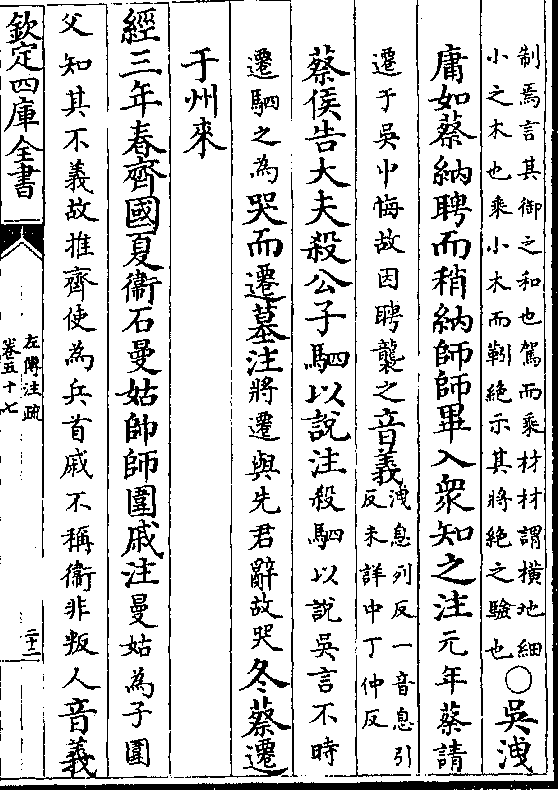 制焉言其御之和也駕而乘材材謂橫地細
小之木也乘小木而靷絶示其將絶之驗也
○吳洩
庸如蔡納聘而稍納師師畢入衆知之注元年蔡請
遷于吳中悔故因聘襲之音義
洩息列反一音息引
反未詳中丁仲反
蔡侯告大夫殺公子駟以說注殺駟以說吳言不時
遷駟之為哭而遷墓注將遷與先君辭故哭冬蔡遷
于州來
經三年春齊國夏衞石曼姑帥師圍戚注曼姑為子圍
父知其不義故推齊使為兵首戚不稱衞非叛人音義
欽定四庫全書
左傳注疏
卷五十七
二十二